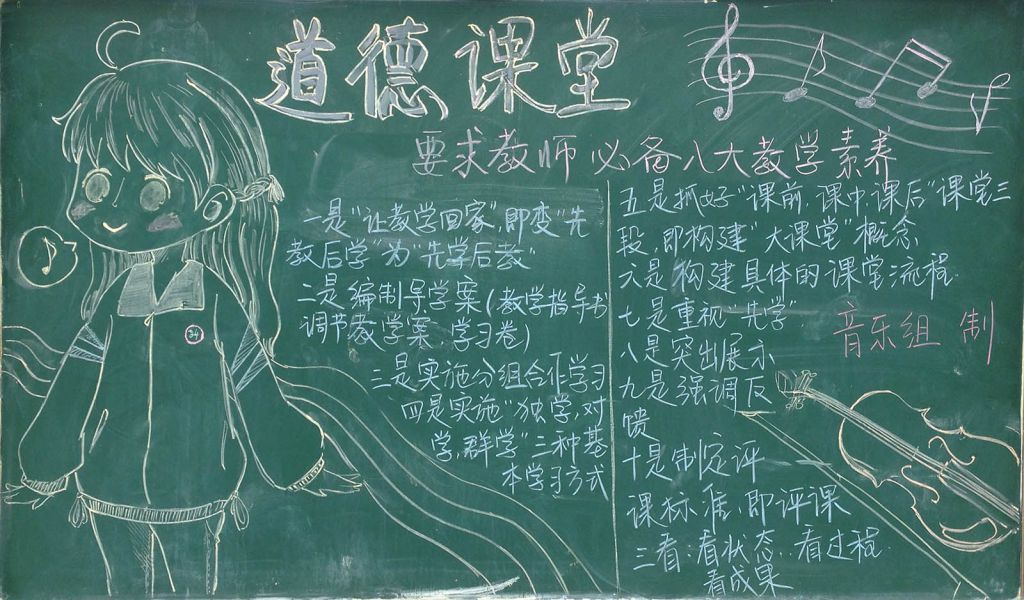 道德课堂
要求教师必备八大教学素养
一是"让教学回家",即变"先
教后学"为"先学后教"
二是编制导学案(教学指导书
调节教学案、学习卷)
三是实施分组合作学习
四是实施"独学,对
学,群学"三种基
本学习方式
五是抓好"课前,课中,课后"课堂三
段,即构建"大课堂"概念
六是构建具体的课堂流程.
七是重视"先学"
八是突出展示
九是强调反
馈
十是制定评
课标准,即评课
三看:看状态.看过程.
看成果
音乐组 制
34